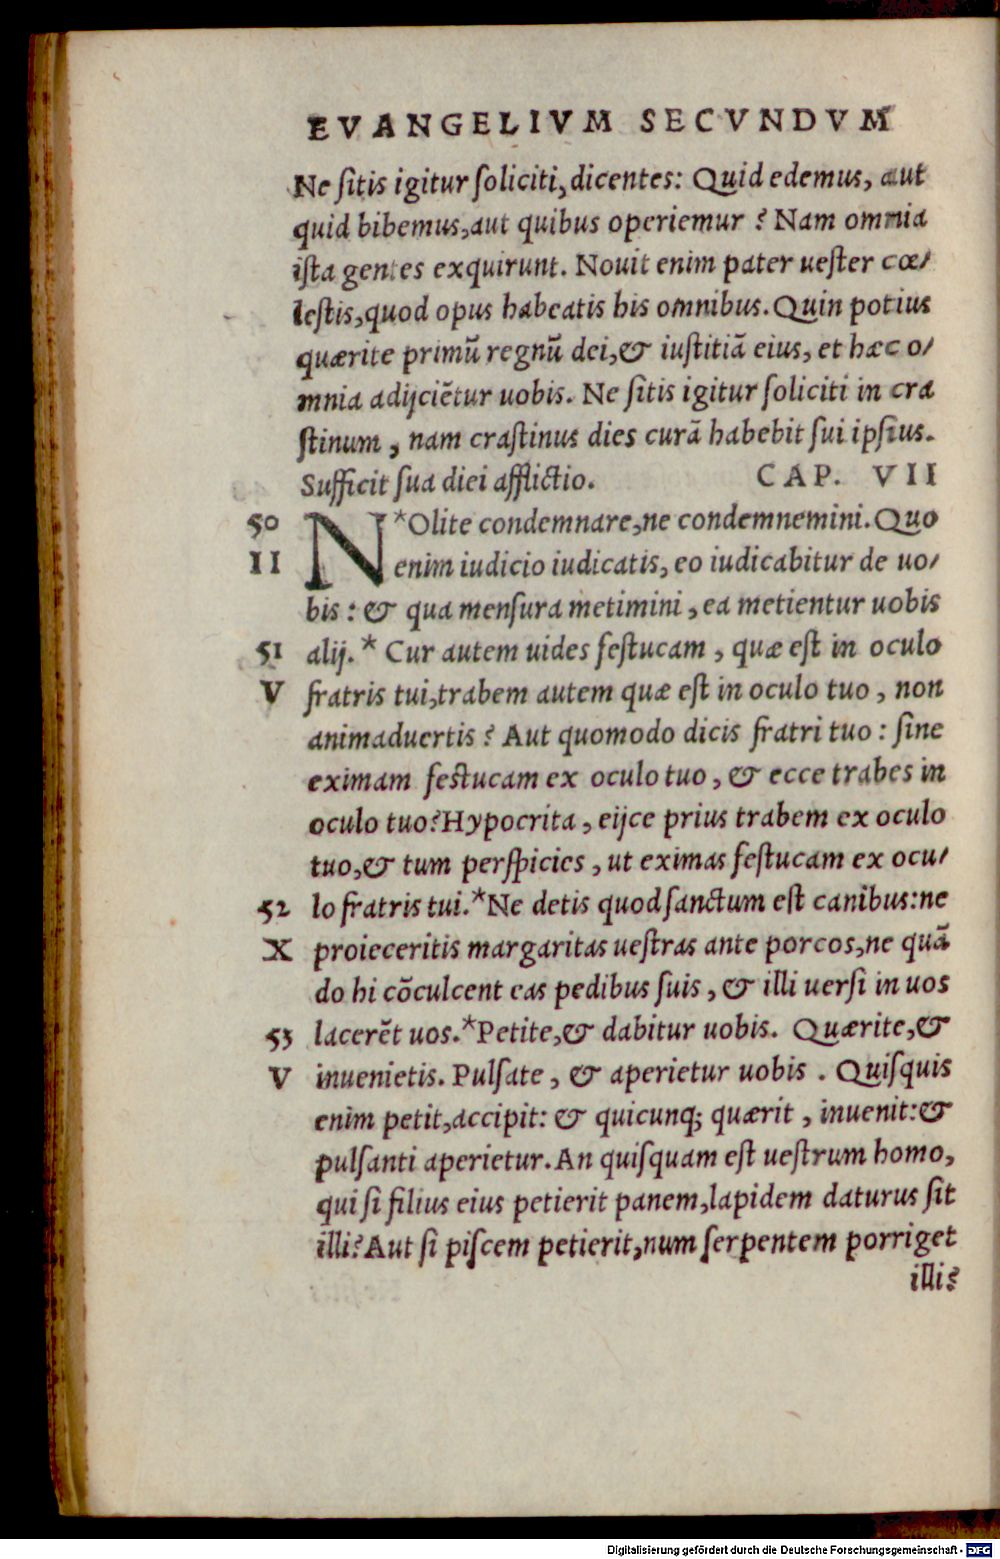 EVANGELIVM SECVNDVM
Ne ſitis igitur ſoliciti, dicentes: Quid edemus, aut
quid bibemus, aut quibus operiemur ? Nam omnia
iſta gentes exquirunt. Nouit enim pater ueſter cœ/
leſtis, quod opus habeatis his omnibus. Quin potius
quærite primũ regnũ dei, & iuſtitiã eius, et hæc o/
mnia adijciẽtur uobis. Ne ſitis igitur ſoliciti in cra
ſtinum, nam craſtinus dies curã habebit ſui ipſius.
Sufficit ſua diei afflictio. CAP. VII
50 N*Olite condemnare, ne condemnemini. Quo
II enim iudicio iudicatis, eo iudicabitur de uo/
bis: & qua menſura metimini, ea metientur uobis
51 alij. * Cur autem uides feſtucam, quæ eſt in oculo
V fratris tui, trabem autem quæ eſt in oculo tuo, non
animaduertis? Aut quomodo dicis fratri tuo: ſine
eximam feſtucam ex oculo tuo, & ecce trabes in
oculo tuo? Hypocrita, eijce prius trabem ex oculo
tuo, & tum perſpicies, ut eximas feſtucam ex ocu/
52 lo fratris tui. *Ne detis quod ſanctum eſt canibus: ne
X proieceritis margaritas ueſtras ante porcos, ne quã
do hi cõculcent eas pedibus ſuis, & illi uerſi in uos
53 lacerẽt uos. *Petite, & dabitur uobis. Quærite, &
V inuenietis. Pulſate, & aperietur uobis. Quiſquis
enim petit, accipit: & quicunq; quærit, inuenit: &
pulſanti aperietur. An quiſquam eſt ueſtrum homo,
qui ſi filius eius petierit panem, lapidem daturus ſit
illi? Aut ſi piſcem petierit, num ſerpentem porriget
illi?
Digitalisierung gefördert durch die Deutsche Forschungsgemeinschaft - DFG